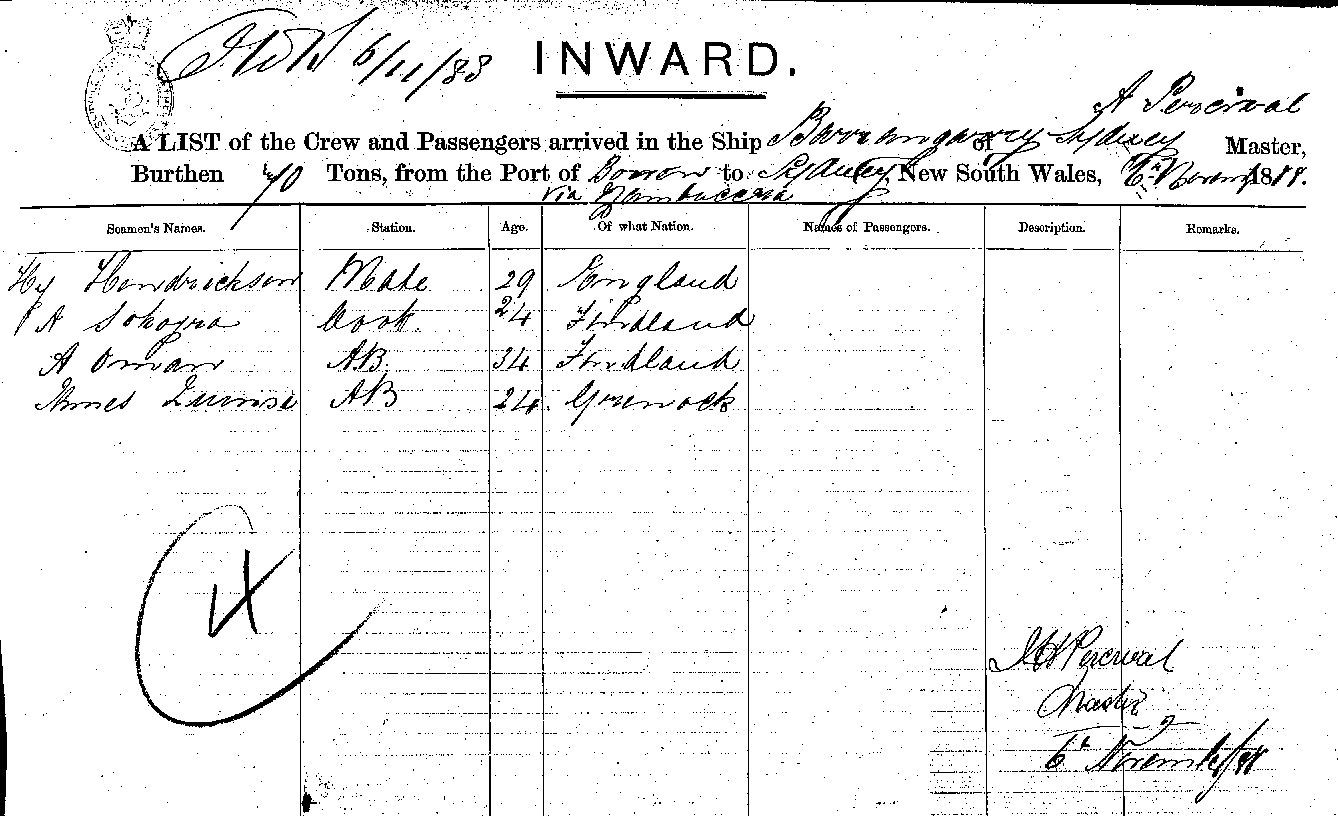 6/11/88 INWARD.
A Percival
A LIST of the Crew and Passengers arrived in the Ship of Sydney Master,
Burthen 70 Tons, from the Port of to Sydney New South Wales, 6th Novem 1888.
via
Seamen's Names. Station. Age. Of what Nation. Names of Passengers. Description. Remarks.
Hy Hendrickson Mate 29 England
A Cook 24 Findland
A Oman AB 34 Findland
AB 24 Greenock
4
Percival
Master
6th November/88